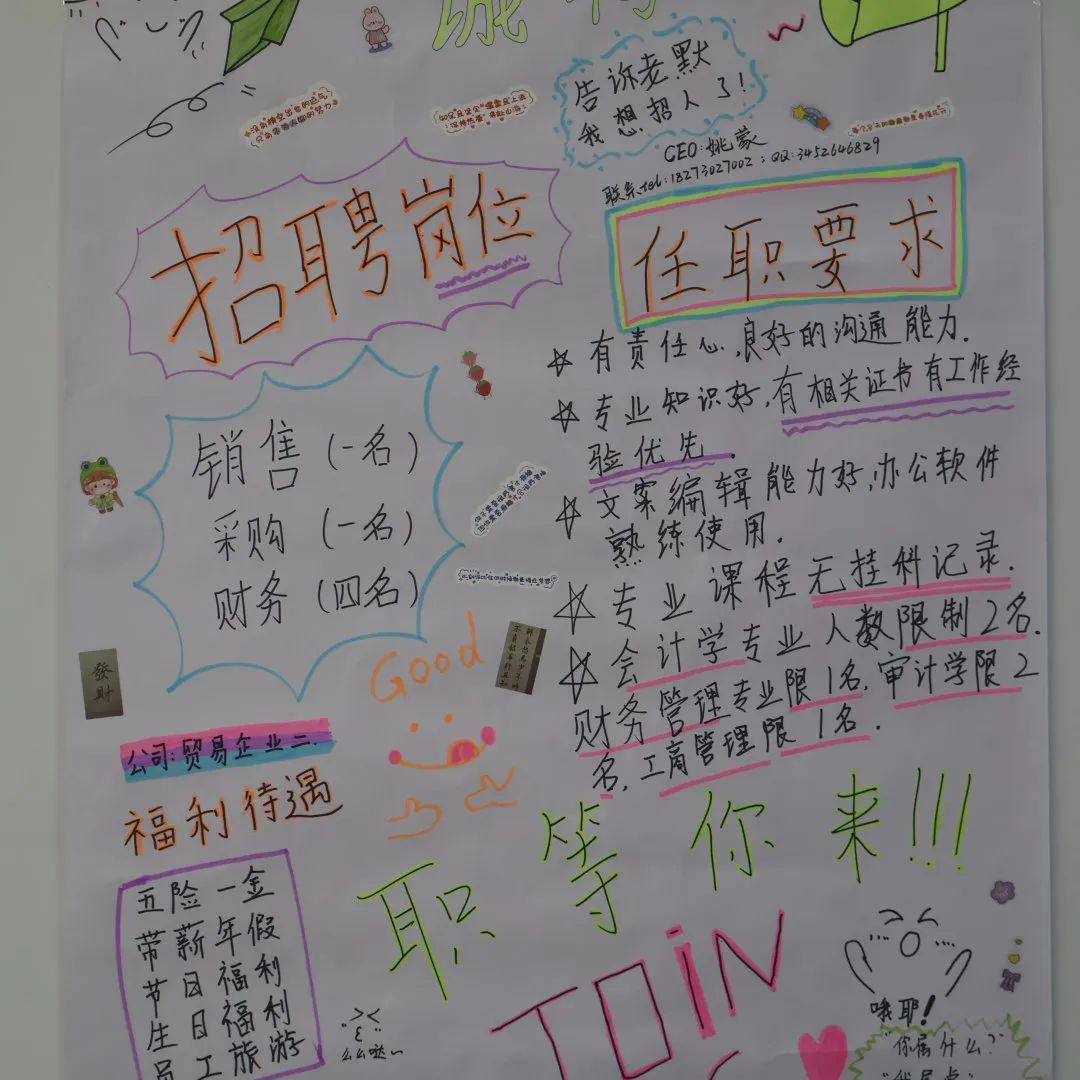 告诉老默
我想招人了!
CEO:姚蒙
联系tel:18273027002;QQ:3452646829
招聘岗位
销售(一名)
采购(一名)
财务(四名)
任职要求
☆有责任心,良好的沟通能力.
☆专业知识好,有相关证书有工作经
验优先.
☆文案编辑能力好,办公软件
熟练使用.
☆专业课程无挂科记录.
☆会计学专业人数限制2名.
财务管理专业限1名,审计学限2
名,工商管理限1名.
Good
發財
公司:贸易企业二.
福利待遇
五险一金
带薪年假
节日福利
生日福利
员工旅游
职等你来!!!
JOiN
么么哒~
哦耶!
"你属什么?"